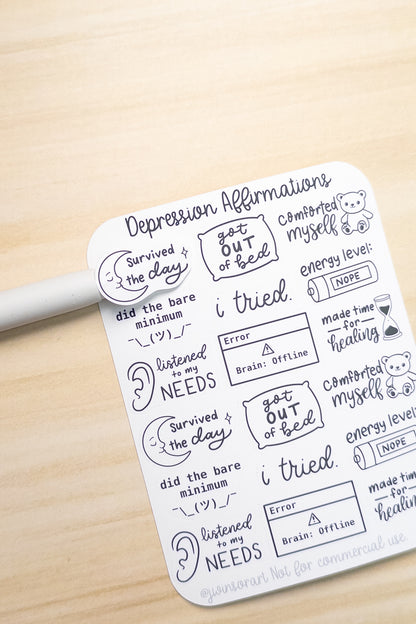 Depression Affirmations
Survived
the day
got
OUT
of bed
comforted
myself
did the bare
minimum
¯\_(ツ)_/¯
i tried.
energy level:
NOPE
listened
to my
NEEDS
Error
Brain: Offline
made time
for
healing
Survived
the day
got
OUT
of bed
comforted
myself
did the bare
minimum
¯\_(ツ)_/¯
i tried.
energy level:
NOPE
listened
to my
NEEDS
Error
Brain: Offline
made time
for
healing
@jwinsorart Not for commercial use